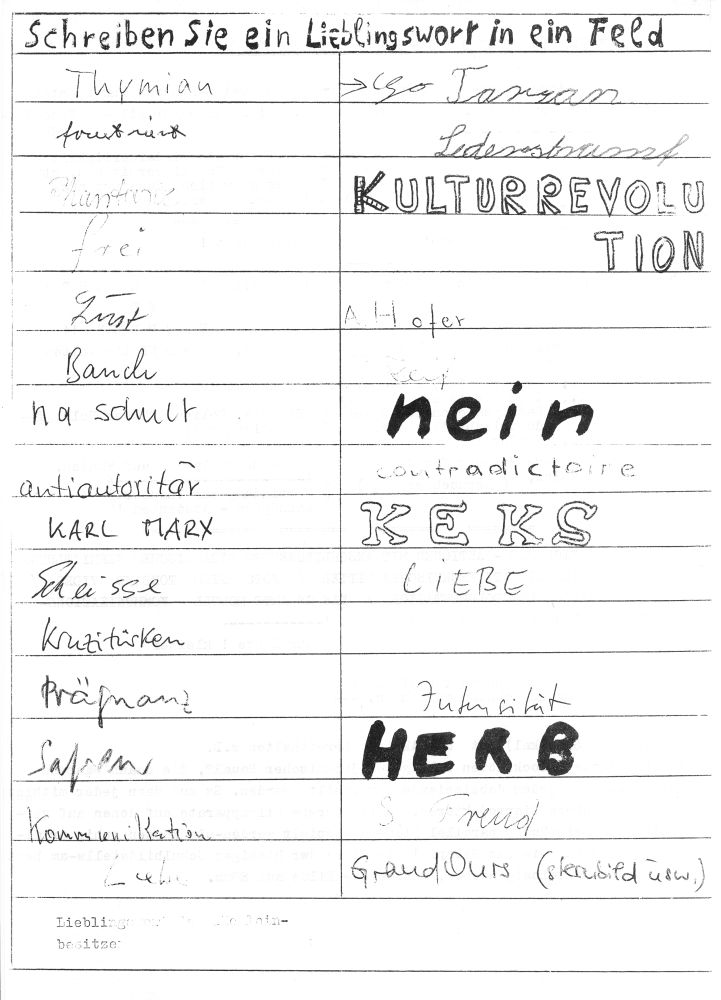 Schreiben Sie ein Lieblingswort in ein Feld
Thymian
Tarzan
frustriert
Lederstrumpf
Phantasie
KULTURREVOLU
TION
frei
Lust
A. Hofer
Bauch
na schult
nein
antiautoritär
contradictoire
KARL MARX
KEKS
Scheisse
LiEBE
Kruzitürken
Prägnanz
Intensität
Safran
HERB
Kommunikation
S. Freud
Liebe
Grand Ours (sternbild usw.)
besitzer